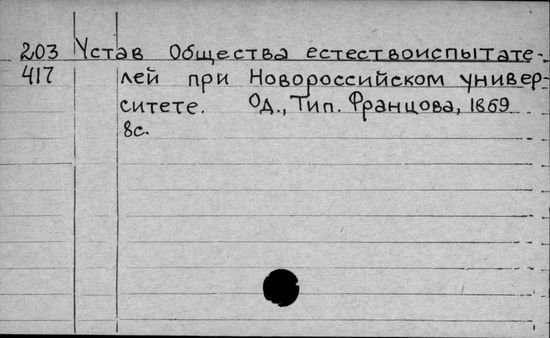 203 Устав Общества естествоиспытате-
417 лей при Новороссийском универ-
ситете. Од., Тип. Францова, 1869
8с.